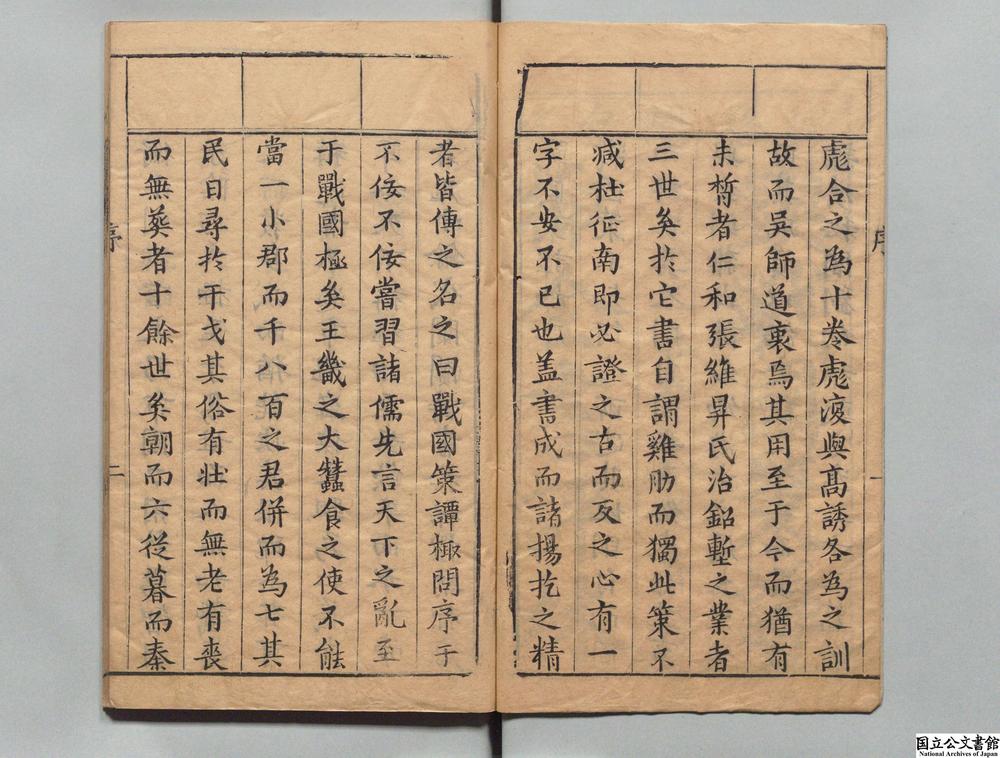 彪合之為十卷彪復與高誘各為之訓
故而吳師道衷焉其用至于今而猶有
未晳者仁和張維昇氏治鉛塹之業者
三世矣扵它書自謂雞肋而獨此策不
減杜征南即必證之古而反之心有一
字不安不已也盖書成而諸揚扢之精
序 一
者皆傳之名之曰戰國策譚棷問序于
不佞不佞嘗習諸儒先言天下之亂至
于戰國極矣王畿之大蠶食之使不能
當一小郡而千八百之君併而為七其
民日尋扵干戈其俗有壯而無老有喪
而無葬者十餘世矣朝而六從暮而秦
序 二
国立公文書館
National Archives of Japan